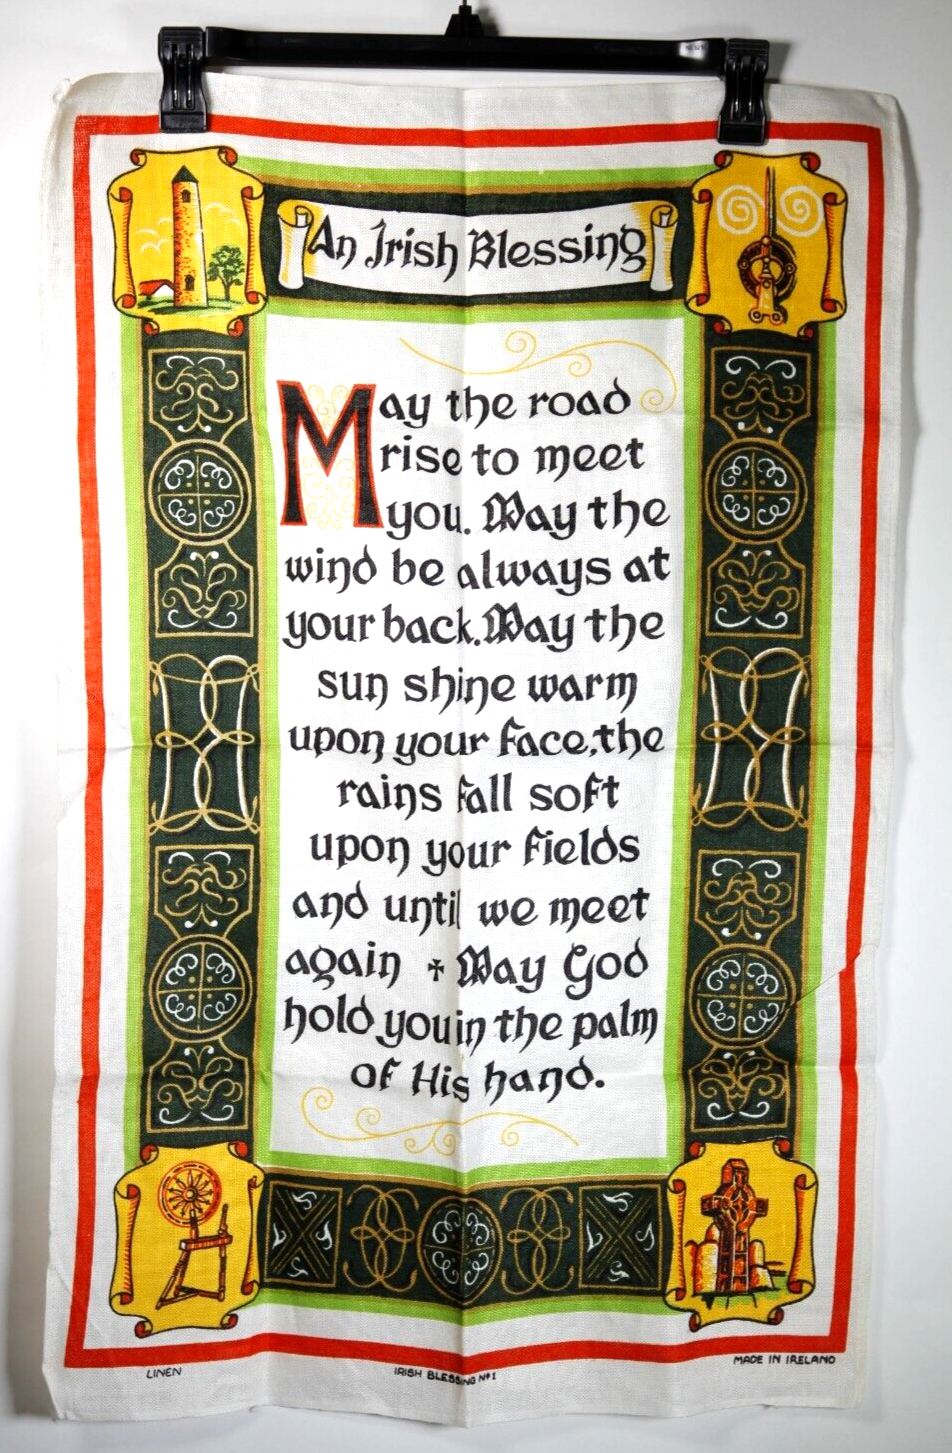 An Irish Blessing
May the road
rise to meet
you. May the
wind be always at
your back. May the
sun shine warm
upon your face, the
rains fall soft
upon your fields
and until we meet
again ✝ May God
hold you in the palm
of His hand.
LINEN
IRISH BLESSING Nº 1
MADE IN IRELAND